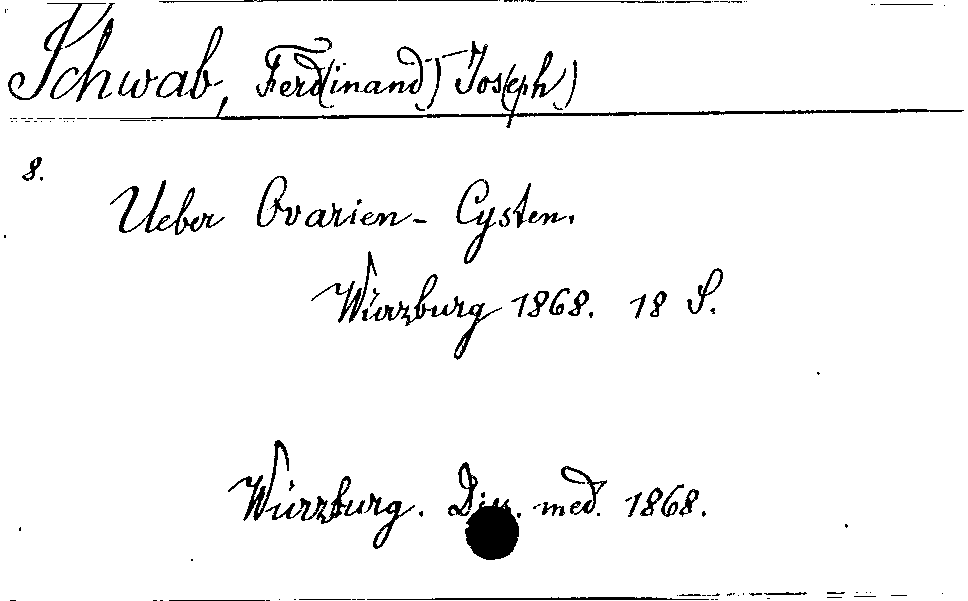 Schwab, Ferd(inand) Jos(eph)
8.
Ueber Ovarien-Cysten.
Würzburg 1868. 18 S.
Würzburg. Diss. med. 1868.